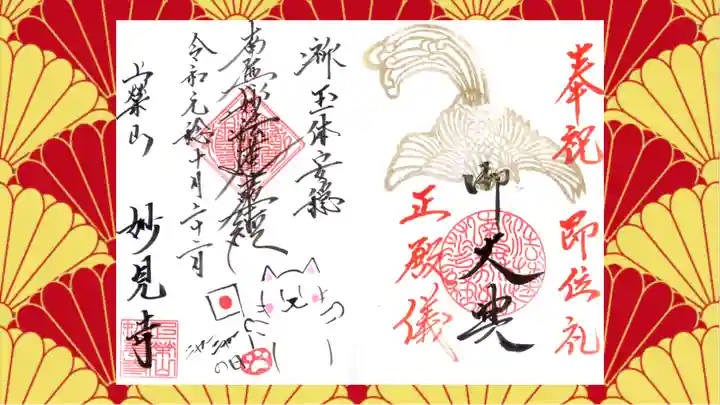 奉祝 即位礼
正殿儀
御大典
祈玉体安穏
南無妙法蓮華経
令和元稔十月二十二日
上榮山 妙見寺
ニャンニャンの日